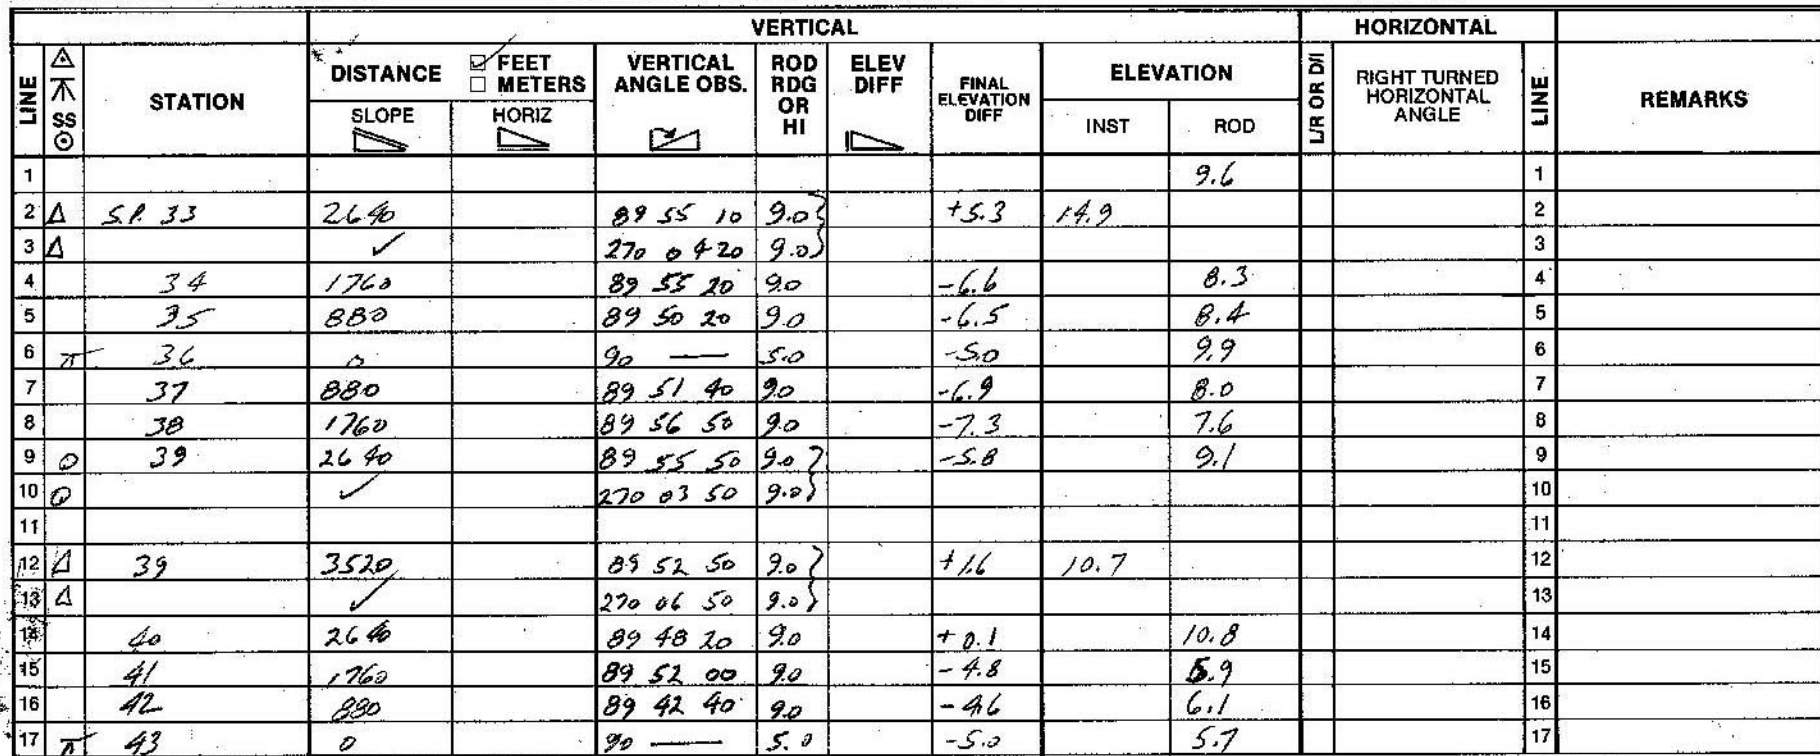 VERTICAL HORIZONTAL
LINE SS STATION DISTANCE ☑ FEET ☐ METERS VERTICAL ANGLE OBS. ROD RDG OR HI ELEV DIFF FINAL ELEVATION DIFF ELEVATION L/R OR D/I RIGHT TURNED HORIZONTAL ANGLE LINE REMARKS
SLOPE HORIZ INST ROD
1 9.6 1
2 Δ S.P. 33 2640 89 55 10 9.0 +5.3 14.9 2
3 Δ ✓ 270 04 20 9.0 3
4 34 1760 89 55 20 9.0 -6.6 8.3 4
5 35 880 89 50 20 9.0 -6.5 8.4 5
6 36 0 90 — 5.0 -5.0 9.9 6
7 37 880 89 51 40 9.0 -6.9 8.0 7
8 38 1760 89 56 50 9.0 -7.3 7.6 8
9 39 2640 89 55 50 9.0 -5.8 9.1 9
10 ✓ 270 03 50 9.0 10
11 11
12 Δ 39 3520 89 52 50 9.0 +1.6 10.7 12
13 Δ ✓ 270 06 50 9.0 13
14 40 2640 89 48 20 9.0 +0.1 10.8 14
15 41 1760 89 52 00 9.0 -4.8 5.9 15
16 42 880 89 42 40 9.0 -4.6 6.1 16
17 43 0 90 — 5.0 -5.0 5.7 17